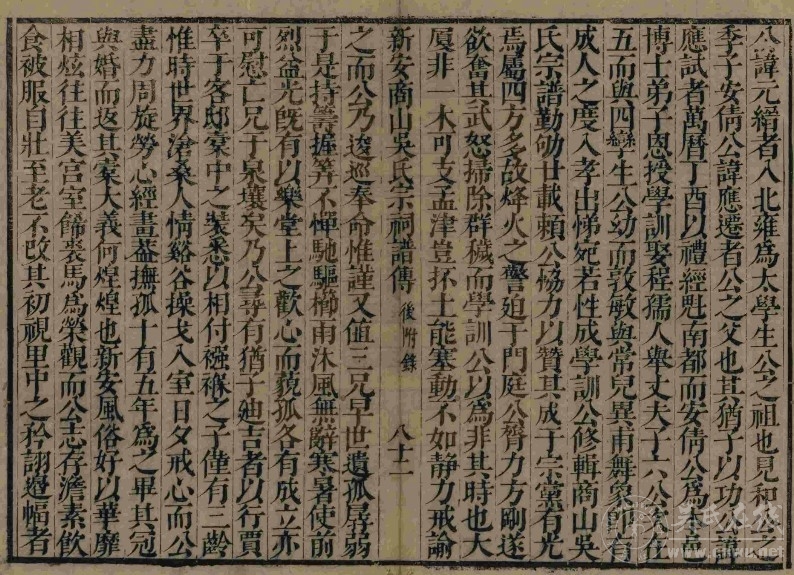 公諱元縉者入北雍爲太學生公之祖也見和公之
季子安倩公諱應遷者公之父也其猶子以功公諱
應試者萬曆丁酉以禮經魁南都而安倩公爲本邑
博士弟子恩授學訓娶程孺人舉丈夫子六公齒在
五而與四孿生公幼而敦敏與常兒異甫舞象即有
成人之度入孝出悌宛若性成學訓公修輯商山吳
氏宗譜勤劬廿載頼公協力以贊其成于宗黨有光
焉屬四方多故烽火之警廹于門庭公膂力方剛遂
欲奮其武怒掃除群穢而學訓公以爲非其時也大
厦非一木可支孟津豈抔土能塞動不如靜力戒諭
新安商山吳氏宗祠譜傳 後附錄 八十二
之而公乃逡巡奉命惟謹又値三兄早世遺孤孱弱
于是持籌握筭不憚馳驅櫛雨沐風無辭寒暑使前
烈益光旣有以樂堂上之歡心而藐孤各有成立亦
可慰亡兄于泉壤矣乃公尋有猶子廸吉者以行賈
卒于客邸槖中之裝悉以相付襁褓之子僅有三齡
惟時世界滄桑人情谿谷操戈入室日夕戒心而公
盡力周旋勞心經畫葢撫孤十有五年爲之畢其冠
與婚而返其槖大義何煌煌也新安風俗好以華靡
相炫往往美宫室餙裘馬爲榮觀而公志存澹素飲
食被服自壯至老不改其初視里中之矜詡邊幅者